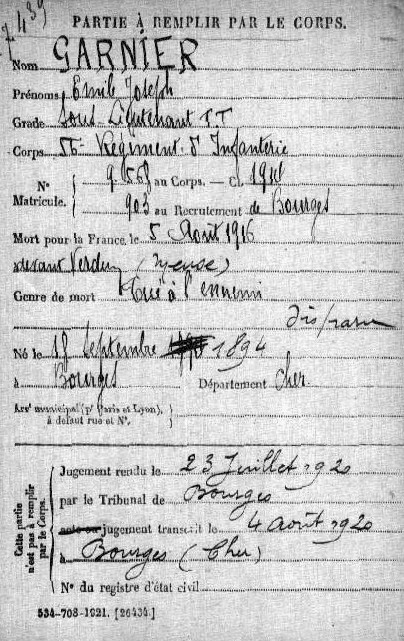 7439
PARTIE À REMPLIR PAR LE CORPS.
Nom GARNIER
Prénoms Emile Joseph
Grade Sous-Lieutenant T.T
Corps Régiment d'Infanterie
N° Matricule. au Corps. — Cl. 1914
903 au Recrutement de Bourges
Mort pour la France le 5 Août 1916
devant Verdun (Meuse)
Genre de mort Tué à l'ennemi
disparu
Né le 18 Septembre 1894
à Bourges Département Cher
Arr¹ municipal (p¹ Paris et Lyon),
à défaut rue et N°.
Cette partie n'est pas à remplir par le Corps.
Jugement rendu le 23 Juillet 1920
par le Tribunal de Bourges
acte ou jugement transcrit le 4 août 1920
à Bourges (Cher)
N° du registre d'état civil
534-708-1921. [26434.]